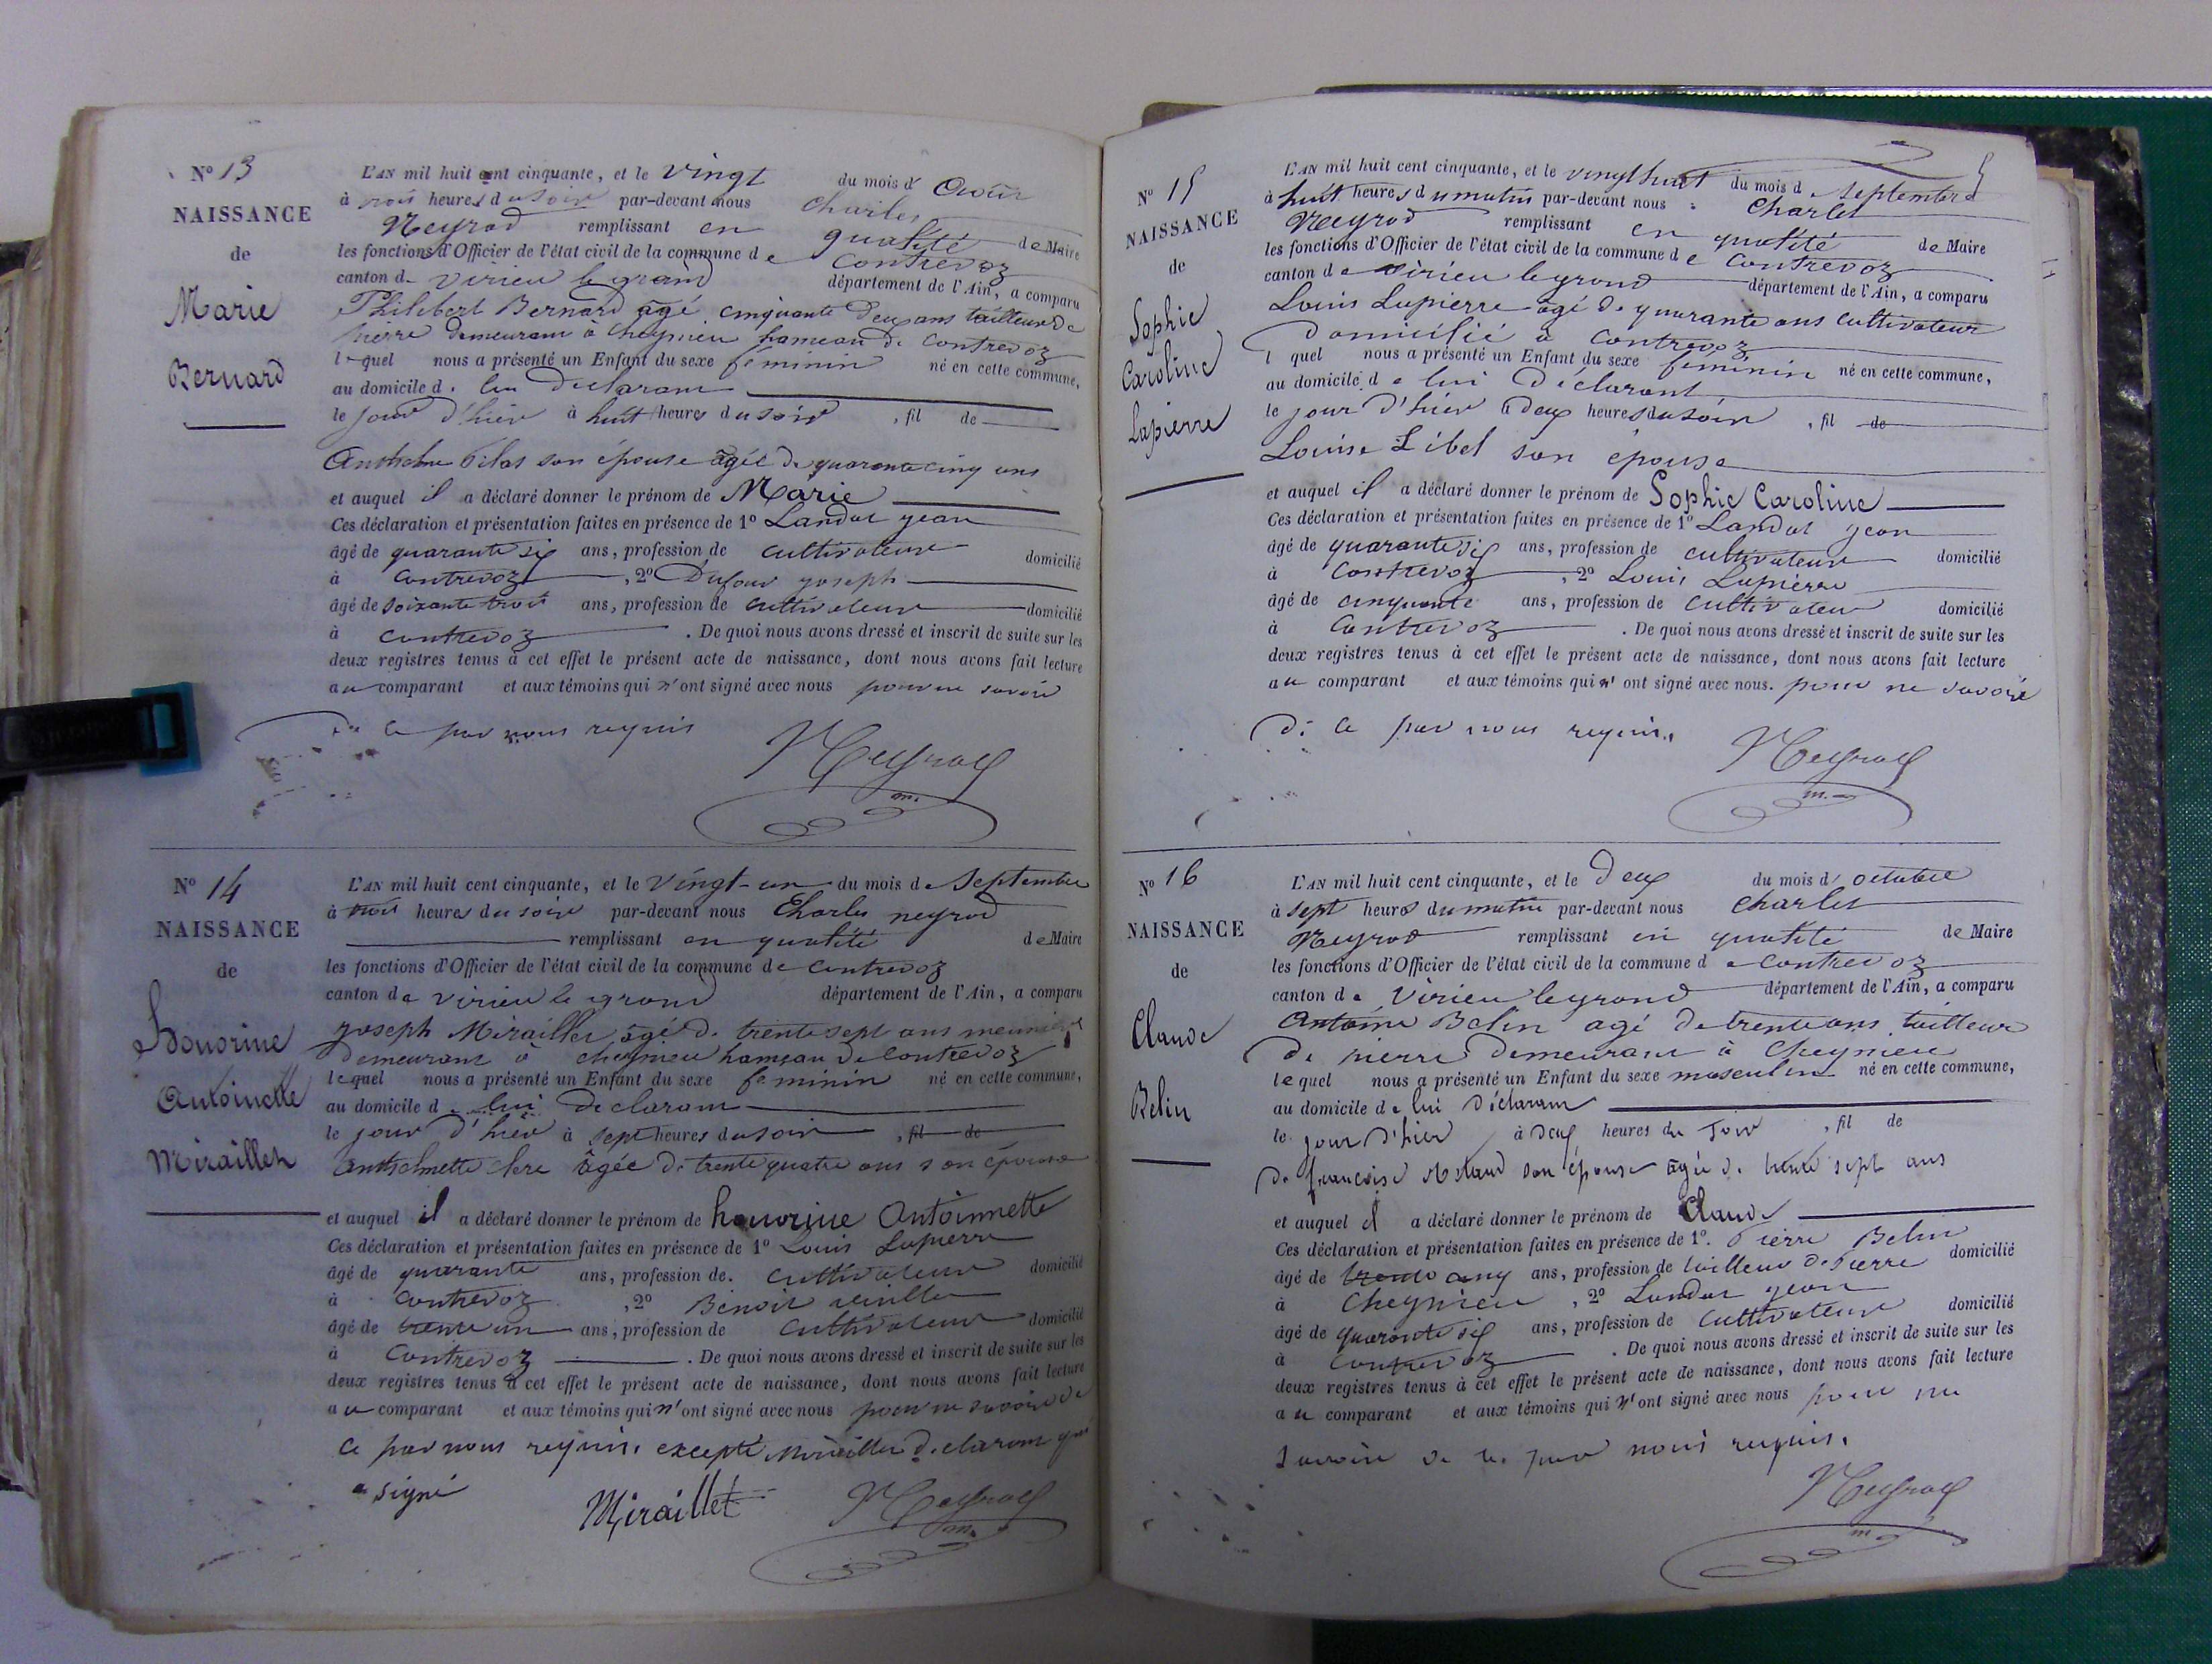 N° 13
NAISSANCE
de
Marie
Bernard
L'AN mil huit cent cinquante, et le vingt du mois d' Août
à trois heures du soir par-devant nous Charles
Neyrod remplissant en qualité de Maire
les fonctions d'Officier de l'état civil de la commune de Contrevoz
canton de virieu le grand département de l'Ain, a comparu
Philibert Bernard âgé cinquante deux ans tailleur de
pierre demeurant à Cheynieu hameau de Contrevoz
lequel nous a présenté un Enfant du sexe féminin né en cette commune,
au domicile de lui Déclarant
le jour d'hier à huit heures du soir , fil de
Anthelme son épouse âgée de quarante cinq ans
et auquel il a déclaré donner le prénom de Marie
Ces déclaration et présentation faites en présence de 1° Landat jean
âgé de quarante six ans, profession de cultivateur domicilié
à Contrevoz , 2° Dufour joseph
âgé de soixante trois ans, profession de cultivateur domicilié
à contrevoz . De quoi nous avons dressé et inscrit de suite sur les
deux registres tenus à cet effet le présent acte de naissance, dont nous avons fait lecture
au comparant et aux témoins qui n'ont signé avec nous pour ne savoir
de ce par nous requis
Neyrod
m.
N° 14
NAISSANCE
de
honorine
Antoinette
Miraillet
L'AN mil huit cent cinquante, et le Vingt-un du mois de Septembre
à trois heures du soir par-devant nous Charles neyrod
remplissant en qualité de Maire
les fonctions d'Officier de l'état civil de la commune de Contrevoz
canton de virieu le grand département de l'Ain, a comparu
joseph Miraillet âgé de trente sept ans meunier
Demeurant à cheynieu hameau de Contrevoz
lequel nous a présenté un Enfant du sexe féminin né en cette commune,
au domicile de lui declarant
le jour d'hier à sept heures du soir , fil de
Anthelmette clere âgée de trente quatre ans son épouse
et auquel il a déclaré donner le prénom de honorine Antoinnette
Ces déclaration et présentation faites en présence de 1° Louis Lapierre
âgé de quarante ans, profession de. cultivateur domicilié
à Contrevoz , 2° Benoit
âgé de trente un ans, profession de cultivateur domicilié
à Contrevoz . De quoi nous avons dressé et inscrit de suite sur les
deux registres tenus à cet effet le présent acte de naissance, dont nous avons fait lecture
au comparant et aux témoins qui n'ont signé avec nous pour ne savoir de
ce par nous requis. excepté Miraillet declarant qui
a signé
Miraillet
Neyrod
m.
N° 15
NAISSANCE
de
Sophie
Caroline
Lapierre
L'AN mil huit cent cinquante, et le vingt huit du mois de septembre
à huit heures du matin par-devant nous Charles
Neyrod remplissant en qualité de Maire
les fonctions d'Officier de l'état civil de la commune de Contrevoz
canton de virieu le grand département de l'Ain, a comparu
Louis Lapierre âgé de quarante ans cultivateur
domicilié à Contrevoz
l quel nous a présenté un Enfant du sexe féminin né en cette commune,
au domicile de lui Déclarant
le jour d'hier à deux heures du soir , fil de
Louise Libel son épouse
et auquel il a déclaré donner le prénom de Sophie Caroline
Ces déclaration et présentation faites en présence de 1° Landat jean
âgé de quarante six ans, profession de cultivateur domicilié
à Contrevoz , 2° Louis Lapierre
âgé de cinquante ans, profession de cultivateur domicilié
à Contrevoz . De quoi nous avons dressé et inscrit de suite sur les
deux registres tenus à cet effet le présent acte de naissance, dont nous avons fait lecture
au comparant et aux témoins qui n'ont signé avec nous. pour ne savoir
de ce par nous requis.
Neyrod
m.
N° 16
NAISSANCE
de
Claude
Belin
L'AN mil huit cent cinquante, et le deux du mois d' octobre
à sept heures du matin par-devant nous Charles
Neyrod remplissant en qualité de Maire
les fonctions d'Officier de l'état civil de la commune de Contrevoz
canton de Virieu le grand département de l'Ain, a comparu
Antoine Belin agé de trente ans tailleur
de pierre demeurant à Cheynieu
lequel nous a présenté un Enfant du sexe masculin né en cette commune,
au domicile de lui Déclarant
le jour d'hier à deux heures du soir , fil de
de françoise son épouse agée de trente sept ans
et auquel il a déclaré donner le prénom de Claude
Ces déclaration et présentation faites en présence de 1°. Pierre Belin
âgé de trente cinq ans, profession de tailleur de Pierre domicilié
à Cheynieu , 2° Landat jean
âgé de quarante six ans, profession de cultivateur domicilié
à Contrevoz . De quoi nous avons dressé et inscrit de suite sur les
deux registres tenus à cet effet le présent acte de naissance, dont nous avons fait lecture
au comparant et aux témoins qui n'ont signé avec nous pour ne
savoir de ce par nous requis.
Neyrod
m.